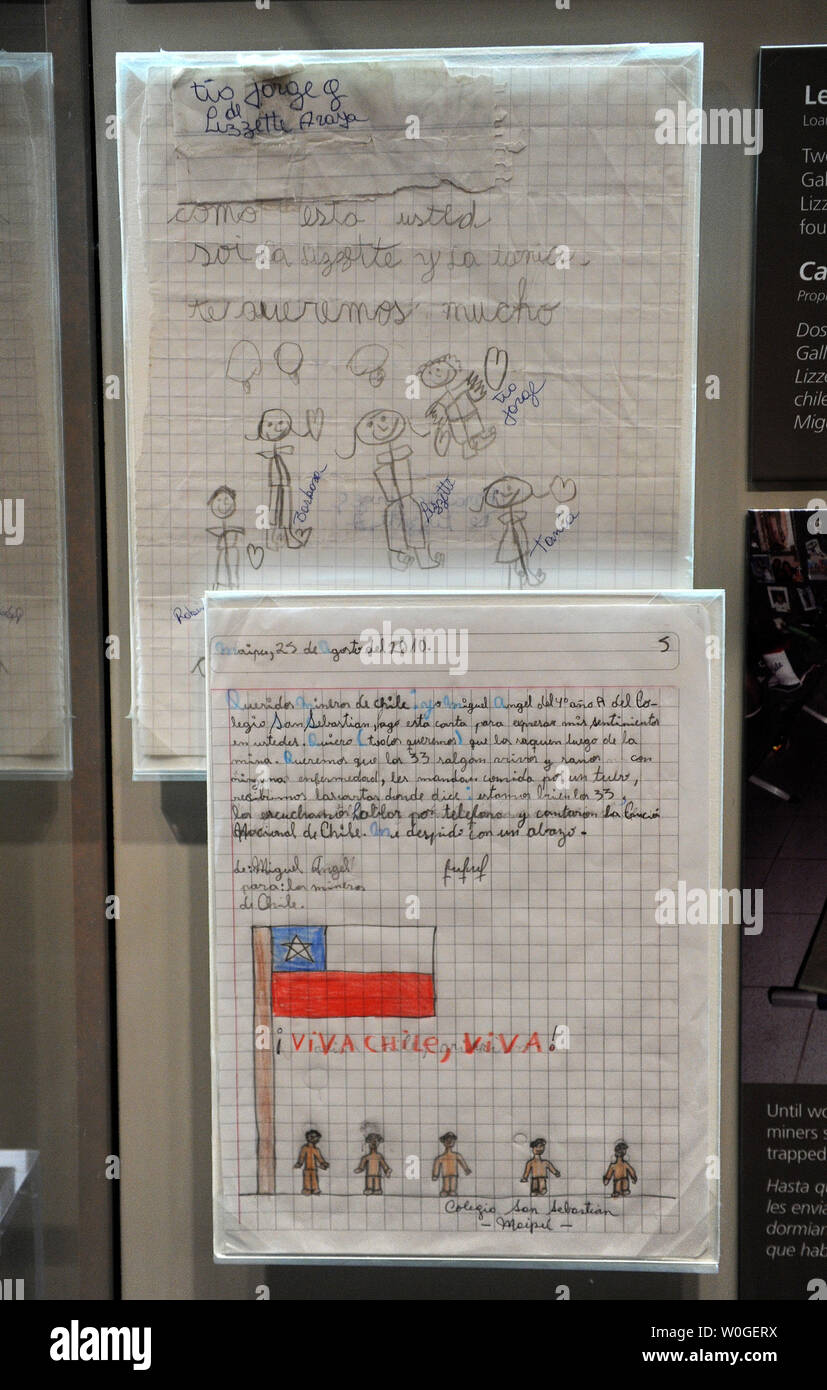 tio Jorge G
de
Lizzette Araya
como esta usted
soi la Lizzette y la tania
te queremos mucho
tio
Jorge
Barbara
Lizzette
Tania
Maipu, 25 de Agosto del 2010.
5
Queridos Mineros de chile: yo Miguel Angel del 4º año A del Co-
legio San Sebastian, ago esta carta para expresar mis sentimientos
en ustedes. Quiero (todos queremos) que los saquen luego de la
mina. Queremos que los 33 salgan vivos y sanos con
ninguna enfermedad, les mandan comida por un tubo,
recibimos las cartas donde dice: estamos bien los 33,
los escuchamos hablar por telefono y cantaron la Canció
Nacional de Chile. Me despido con un abazo.
de: Miguel Angel
para: los mineros
de Chile.
¡VIVA CHILE, VIVA!
Colegio San Sebastian
- Maipú -
Le
Loan
Two
Gal
Lizz
fou
Ca
Propi
Dos
Gall
Lizz
chile
Migu
Until wo
miners s
trapped
Hasta qu
les envia
dormiar
que hab
alamy
alamy
Image ID: W0GERX
www.alamy.com